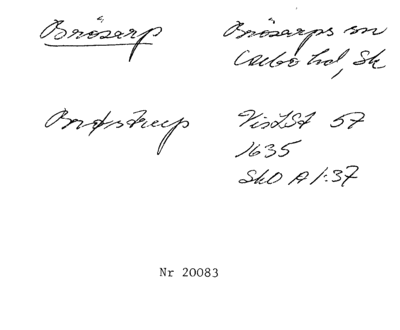 Brösarp Brösarps sn
Albo hd, Sk
Brøstrup VisLSt 57
1635
SkO A 1:37
Nr 20083